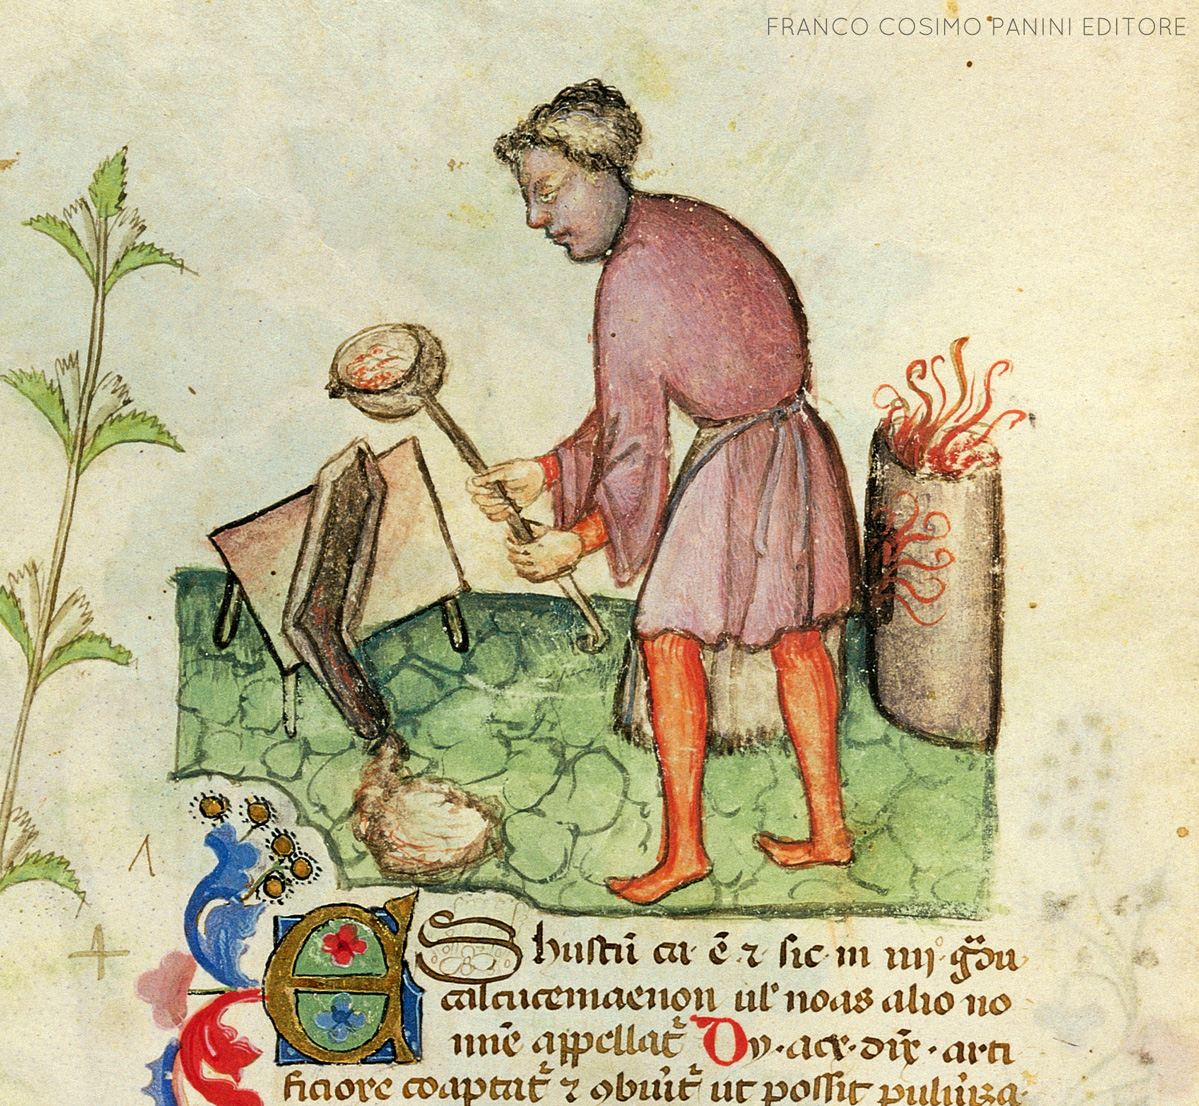 FRANCO COSIMO PANINI EDITORE
ES hustũ ca˙ ẽ ⁊ sic˙ in iiij˙ g̃du
calcucemaenon ul' noas alio no
mĩe appellat᷑ Dy·acx·dix̃·arti
ficiore coaptat᷑ ⁊ ꝯbuit᷑ ut possit puluiza